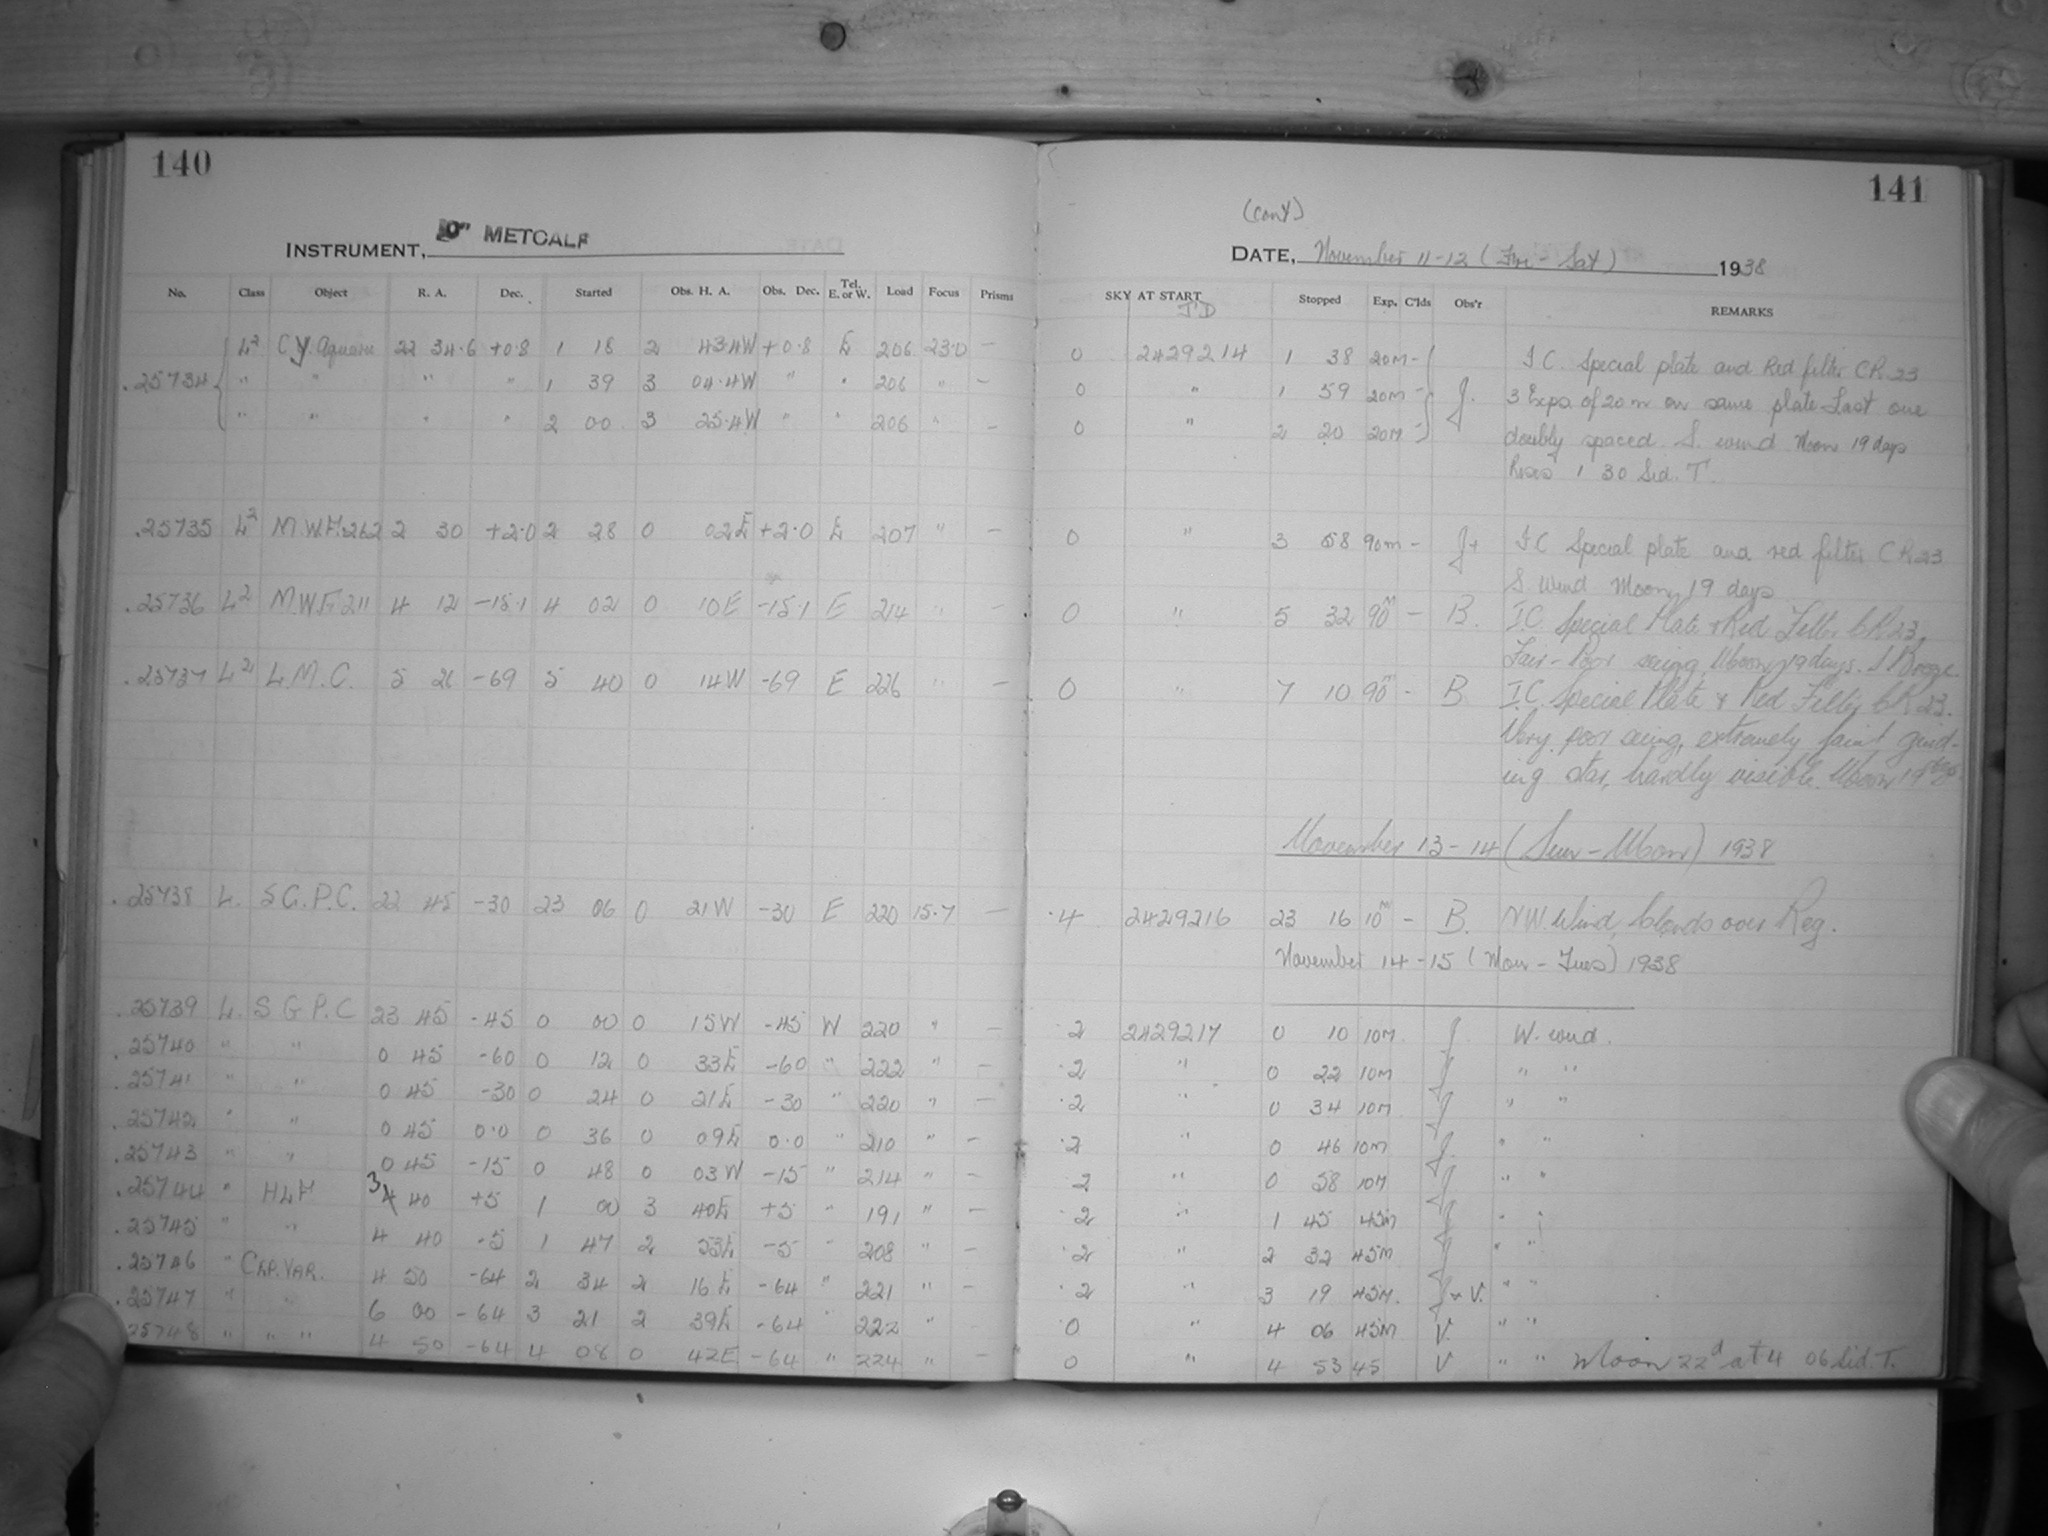 140
INSTRUMENT, 10" METCALF
No. Class Object R. A. Dec. Started Obs. H. A. Obs. Dec. Tel. E. or W. Load Focus Prisms
L2 CY. Aquarii 22 34.6 +0.8 1 18 2 43.4W +0.8 E 206 23.0 —
.25734 " " " " 1 39 3 04.4W " " 206 " —
" " " " 2 00 3 25.4W " " 206 " —
.25735 L2 M.W.F. 262 2 30 +2.0 2 28 0 02E +2.0 E 207 " —
.25736 L2 M.W.F. 211 4 12 -15.1 4 02 0 10E -15.1 E 214 " —
.25737 L2 L.M.C. 5 26 -69 5 40 0 14W -69 E 226 " —
.25738 L. S.G.P.C. 22 45 -30 23 06 0 21W -30 E 220 15.7 —
.25739 L. S G P.C 23 45 -45 0 00 0 15W -45 W 220 " —
.25740 " " 0 45 -60 0 12 0 33E -60 " 222 " —
.25741 " " 0 45 -30 0 24 0 21E -30 " 220 " —
.25742 " " 0 45 0.0 0 36 0 09E 0.0 " 210 " —
.25743 " " 0 45 -15 0 48 0 03W -15 " 214 " —
.25744 " HLF 3 40 +5 1 00 3 40E +5 " 191 " —
.25745 " " 4 40 -5 1 47 2 53E -5 " 208 " —
.25746 " CAP.VAR. 4 50 -64 2 34 2 16E -64 " 221 " —
.25747 " " 6 00 -64 3 21 2 39E -64 " 222 " —
25748 " " " 4 50 -64 4 08 0 42E -64 " 224 " —
141
(cont)
DATE, November 11-12 (Fri - Sat) 1938
SKY AT START Stopped Exp. C'lds Obs'r REMARKS
J D
0 2429214 1 38 20m - I C. Special plate and Red filter CR 23
0 " 1 59 20m - J. 3 Exps of 20m on same plate Last one
0 " 2 20 20m - doubly spaced. S. wind Moon 19 days
Rises 1 30 Sid. T.
0 " 3 58 90m - J+ I C Special plate and red filter CR 23
S. wind Moon 19 days
0 " 5 32 90m - B. I.C. Special Plate + Red Filter CR 23,
Fair-Poor seeing, Moon 19 days. S Breeze
0 " 7 10 90m - B. I.C. Special Plate & Red Filter CR 23.
Very poor seeing, extremely faint guid-
ing star, hardly visible. Moon 19 days
November 13-14 (Sun-Mon) 1938
.4 2429216 23 16 10m - B. NW. Wind, Clouds over Reg.
November 14-15 (Mon-Tues) 1938
.2 2429217 0 10 10m J W. wind.
.2 " 0 22 10m J " "
.2 " 0 34 10m J " "
.2 " 0 46 10m J. " "
.2 " 0 58 10m J " "
.2 " 1 45 45m J " "
.2 " 2 32 45m J " "
.2 " 3 19 45m. J + V. " "
0 " 4 06 45m V. " "
0 " 4 53 45 V " " Moon 22d at 4 06 Sid. T.